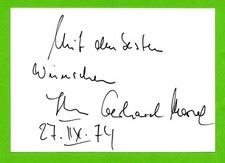 Mit den besten
Wünschen
Ihr Gerhard
27. IX. 74